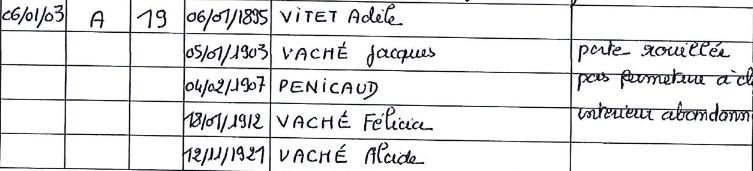 06/01/03 A 19 06/01/1895 VITET Adèle
05/01/1903 VACHÉ Jacques porte rouillée
04/02/1907 PENICAUD pas fermeture à cl
18/01/1912 VACHÉ Félicia interieur abandonn
12/11/1921 VACHÉ Alcide